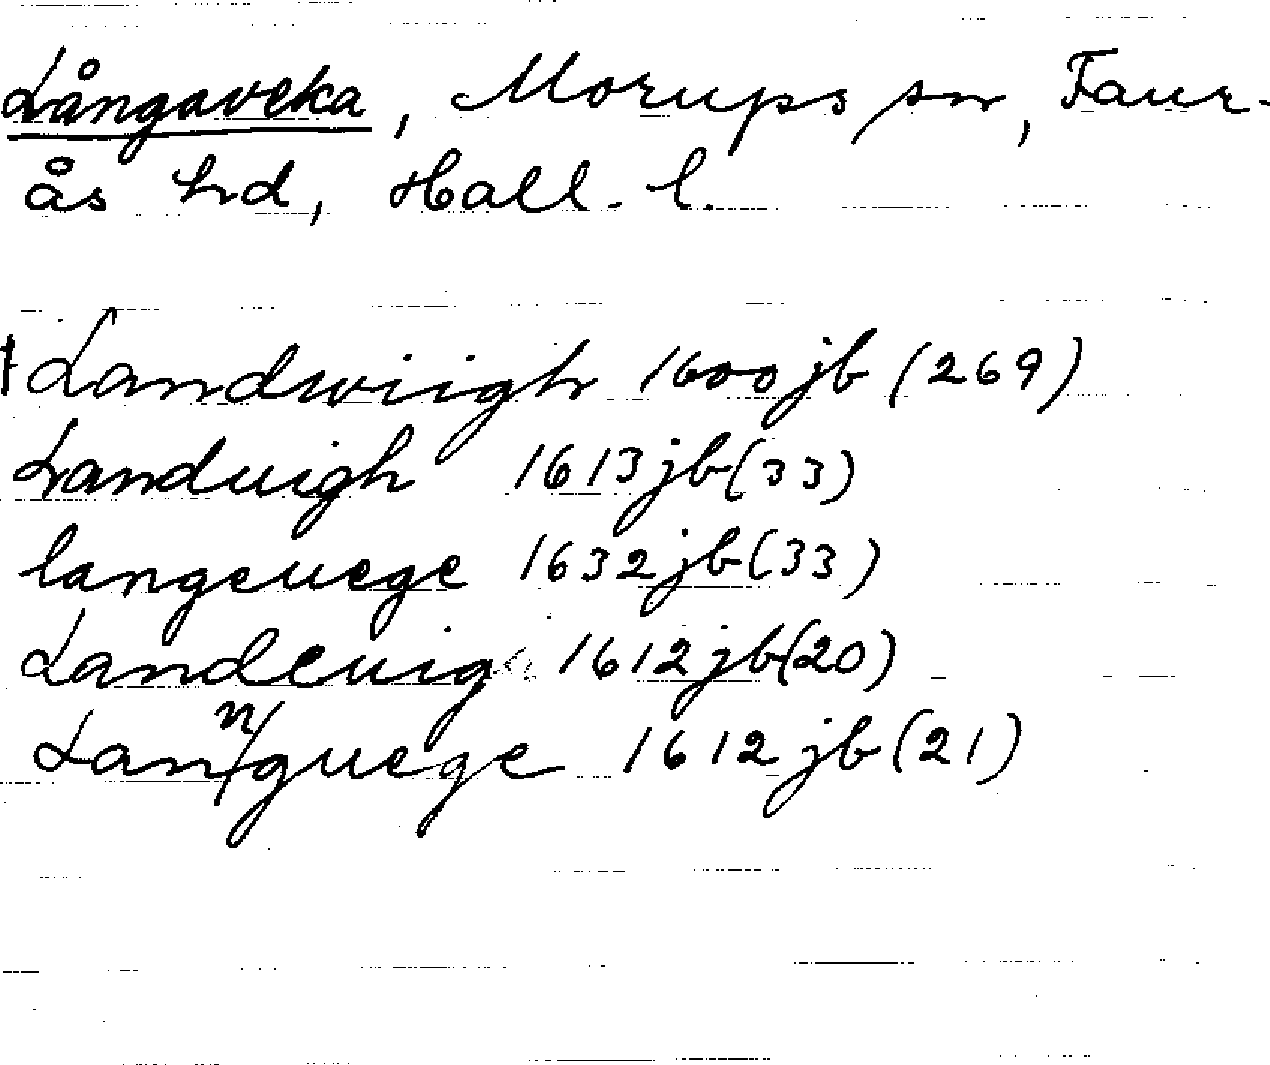 Långaveka, Morups sn, Faur-
ås hd, Hall. l.
Landwiigh 1600 jb (269)
Landuigh 1613 jb (33)
langeuege 1632 jb (33)
Landeuig 1612 jb (20)
Languege 1612 jb (21)